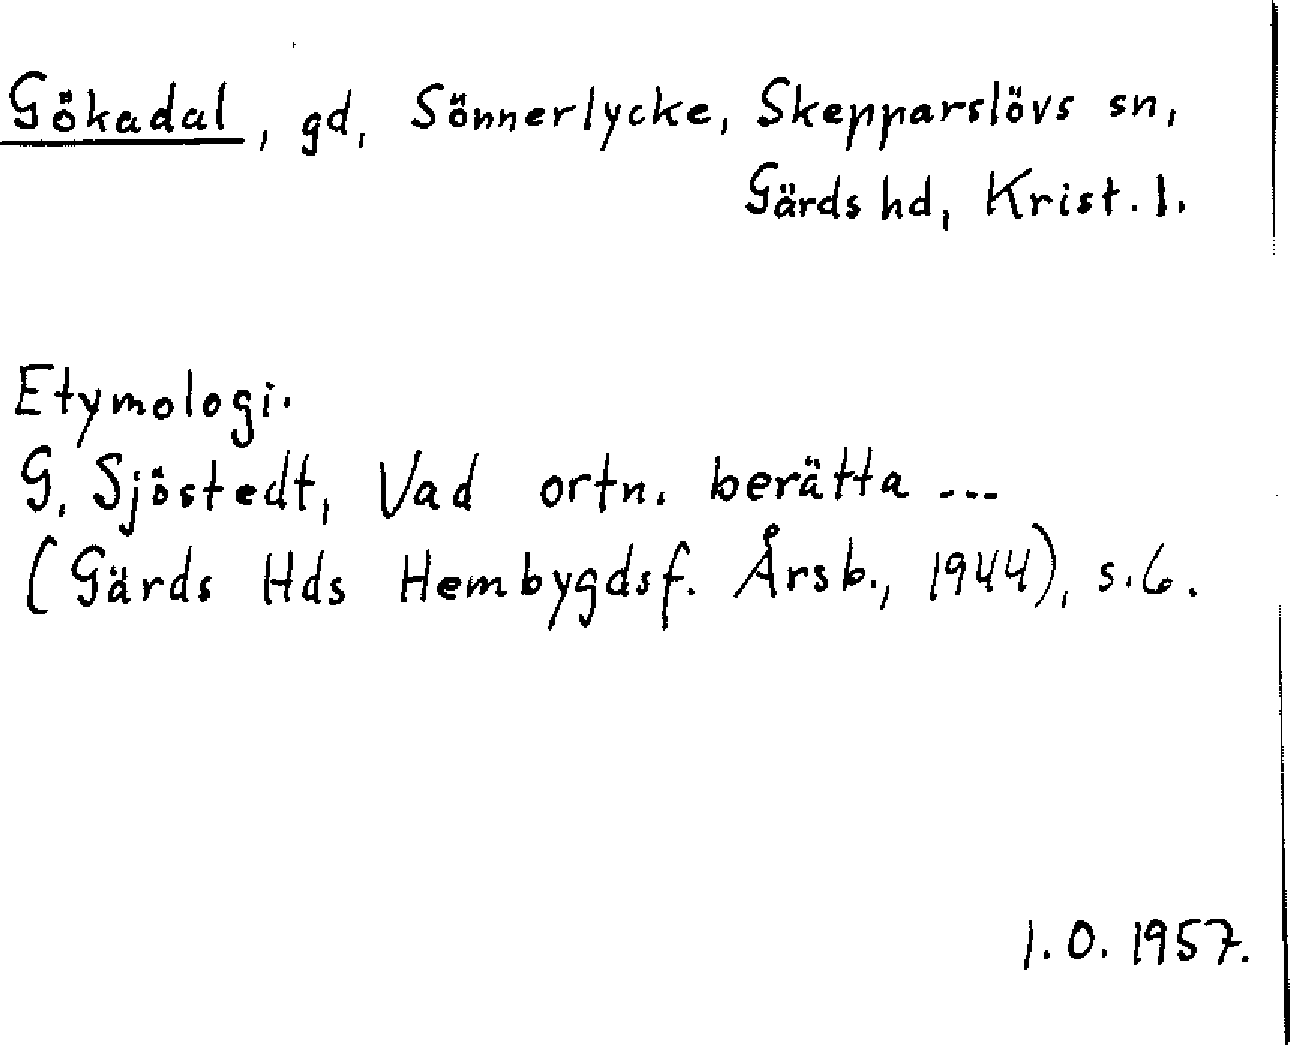 Gökadal, gd, Sönnerlycke, Skepparslövs sn,
Gärds hd, Krist. l.
Etymologi.
G. Sjöstedt, Vad ortn. berätta ---
(Gärds Hds Hembygdsf. Årsb., 1944), s. 6.
I. O. 1957.